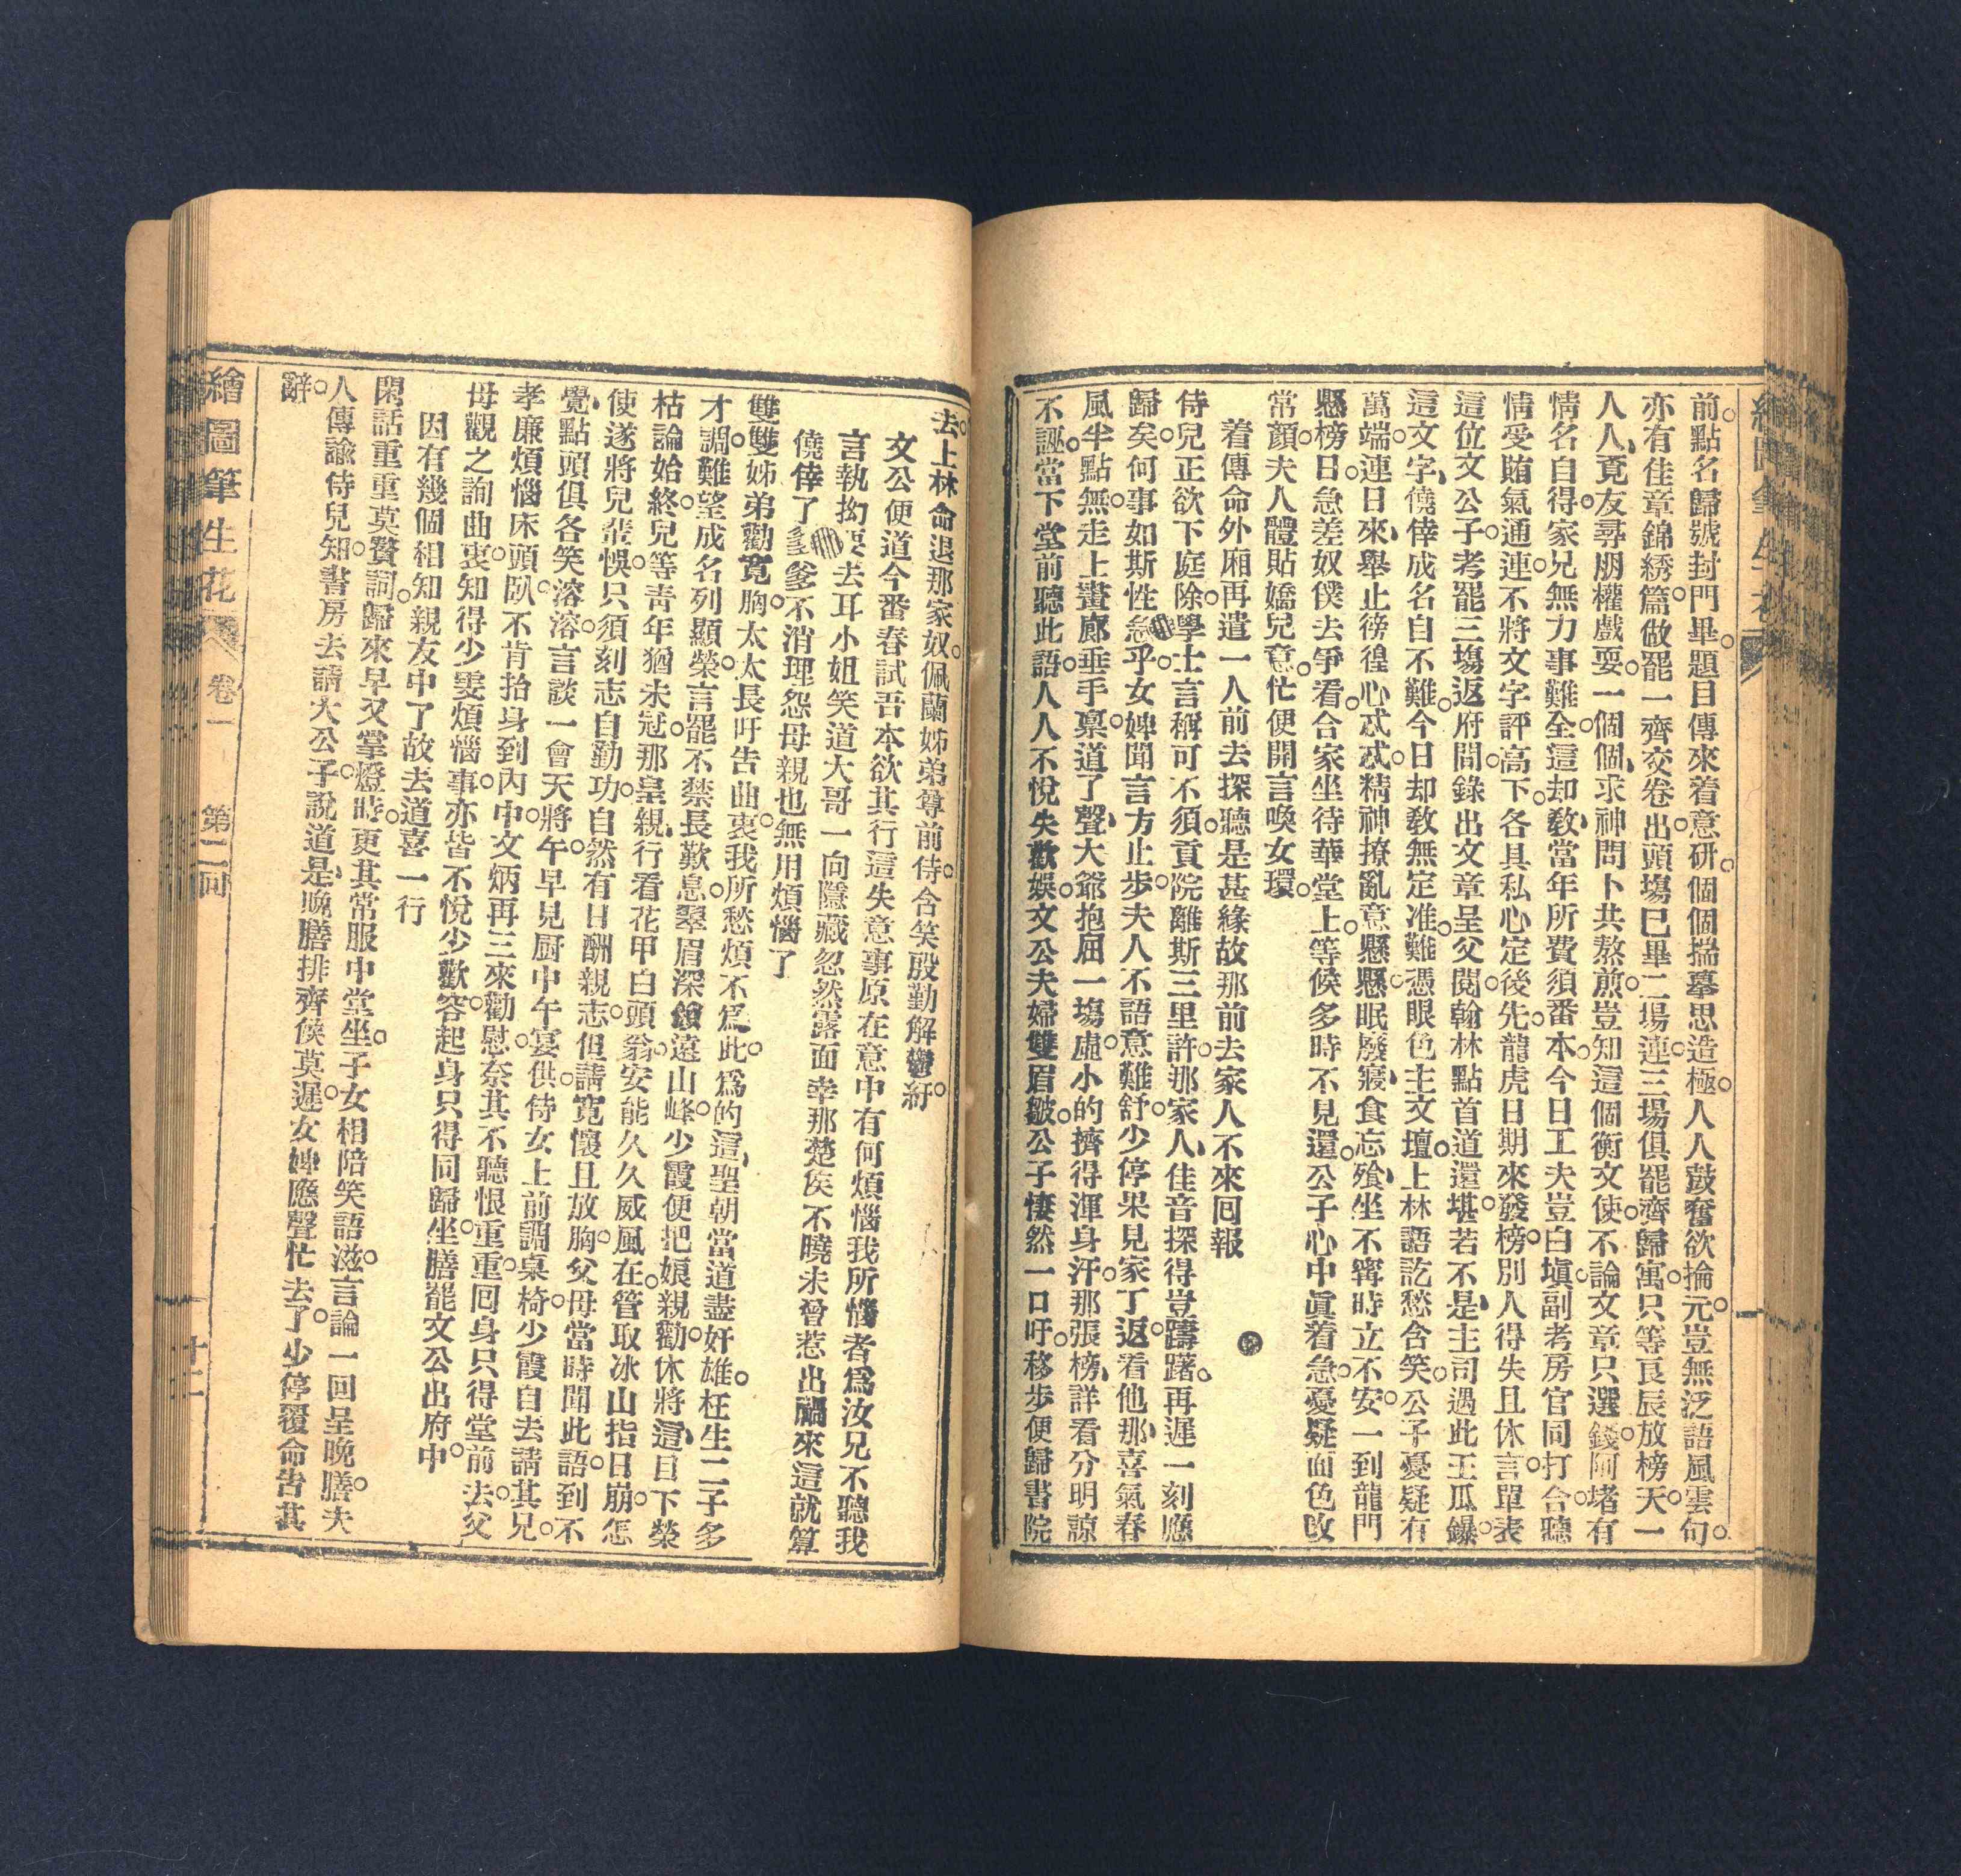 前。點名歸號封門畢。題目傳來着意研。個個揣摹思造極。人人鼓奮欲掄元。豈無泛語風雲句。
亦有佳章錦綉篇。做罷一齊交卷出。頭塲巳畢二塲連。三場俱罷齊歸寓。只等良辰放榜天。一
人人、覓友尋朋權戲耍。一個個、求神問卜共熬煎。豈知這個衡文使。不論文章只選錢。阿堵有
情名自得。家兄無力事難全。這却敎、當年所費須番本。今日工夫豈白塡。副考房官同打合。聽
情受賄氣通連。不將文字評高下。各具私心定後先。龍虎日期來發榜。別人得失且休言。單表
這位文公子。考罷三塲返府間。錄出文章呈父閱。翰林點首道還堪。若不是、主司遇此王瓜鑤。
這文字、僥倖成名自不難。今日却敎無定准。難憑眼色主文壇。上林語訖愁含笑。公子憂疑有
萬端。連日來、舉止徬徨心忒忒。精神撩亂意懸懸。眠廢寢、食忘飧、坐不甯時立不安。一到龍門
懸榜日。急差奴僕去爭看。合家坐待華堂上。等候多時不見還。公子心中眞着急。憂疑面色改
常顏。夫人體貼嬌兒意。忙便開言喚女環。
着傳命外廂再遣一人前去探聽是甚緣故那前去家人不來囘報
侍兒正欲下庭除。學士言稱可不須。貢院離斯三里許。那家人、佳音探得豈躊躇。再遲一刻應
歸矣。何事如斯性急乎。女婢聞言方止步。夫人不語意難舒。少停果見家丁返。看他那、喜氣春
風半點無。走上畫廊垂手禀。道了聲、大爺抱屈一塲虛。小的擠得渾身汗。那張榜、詳看分明諒
不誣。當下堂前聽此語。人人不悅失歡娛。文公夫婦雙眉皺。公子悽然一口吁。移步便歸書院
去。上林命退那家奴。佩蘭姊弟尊前侍。含笑殷勤解鬱紆。
文公便道今番春試吾本欲其行這失意事原在意中有何煩惱我所惱者爲汝兄不聽我
言執拗要去耳小姐笑道大哥一向隱藏忽然露面幸那楚侯不曉未曾惹出禍來這就算
僥倖了爹爹不消理怨母親也無用煩惱了
雙雙姊弟勸寬胸。太太長吁告曲衷。我所愁煩不爲此。爲的這、聖朝當道盡奸雄。枉生二子多
才調。難望成名列顯榮。言罷不禁長歎息。翠眉深鎖遠山峰。少霞便把娘親勸。休將這、目下榮
枯論始終。兒等靑年猶未冠。那皇親、行看花甲白頭翁。安能久久威風在。管取冰山指日崩。怎
使遂將兒輩悞。只須刻志自勤功。自然有日酬親志。但請寬懷且放胸。父母當時聞此語。到不
覺、點頭俱各笑溶溶。言談一會天將午。早見厨中午宴供。侍女上前調桌椅。少霞自去請其兄。
孝廉煩惱床頭臥。不肯抬身到內中。文炳再三來勸慰。奈其不聽恨重重。囘身只得堂前去。父
母觀之詢曲衷。知得少雯煩惱事。亦皆不悅少歡容。起身只得同歸坐。膳罷文公出府中。
因有幾個相知親友中了故去道喜一行
閑話重重莫贅詞。歸來早又掌燈時。更其常服中堂坐。子女相陪笑語滋。言論一回呈晚膳。夫
人傳諭侍兒知。書房去請大公子。說道是、晚膳排齊候莫遲。女婢應聲忙去了。少停覆命告其
辭。
繪圖筆生花 卷一 第二囘 十二